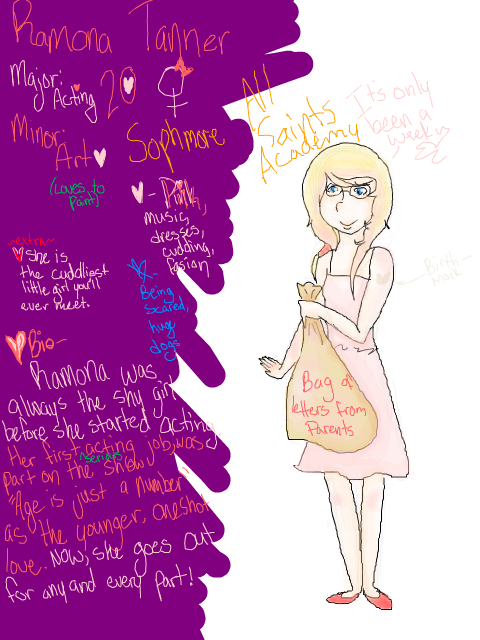 Ramona Tanner
Major:
Acting
20
Minor:
Art
Sophmore
(Loves to
Paint)
- Pink,
music,
dresses,
cuddling,
fasion
- Being
Scared,
huge
dogs
~extra~
she is
the cuddliest
little girl you'll
ever meet.
Bio-
Ramona was
always the shy girl
before she started acting
Her first serious acting job, was
part on the show
"Age is just a number"
as the younger, oneshot
love. Now, she goes out
for any and every part!
All
Saints
Academy
It's only
been a
week
Birth-
mark
Bag of
letters from
Parents